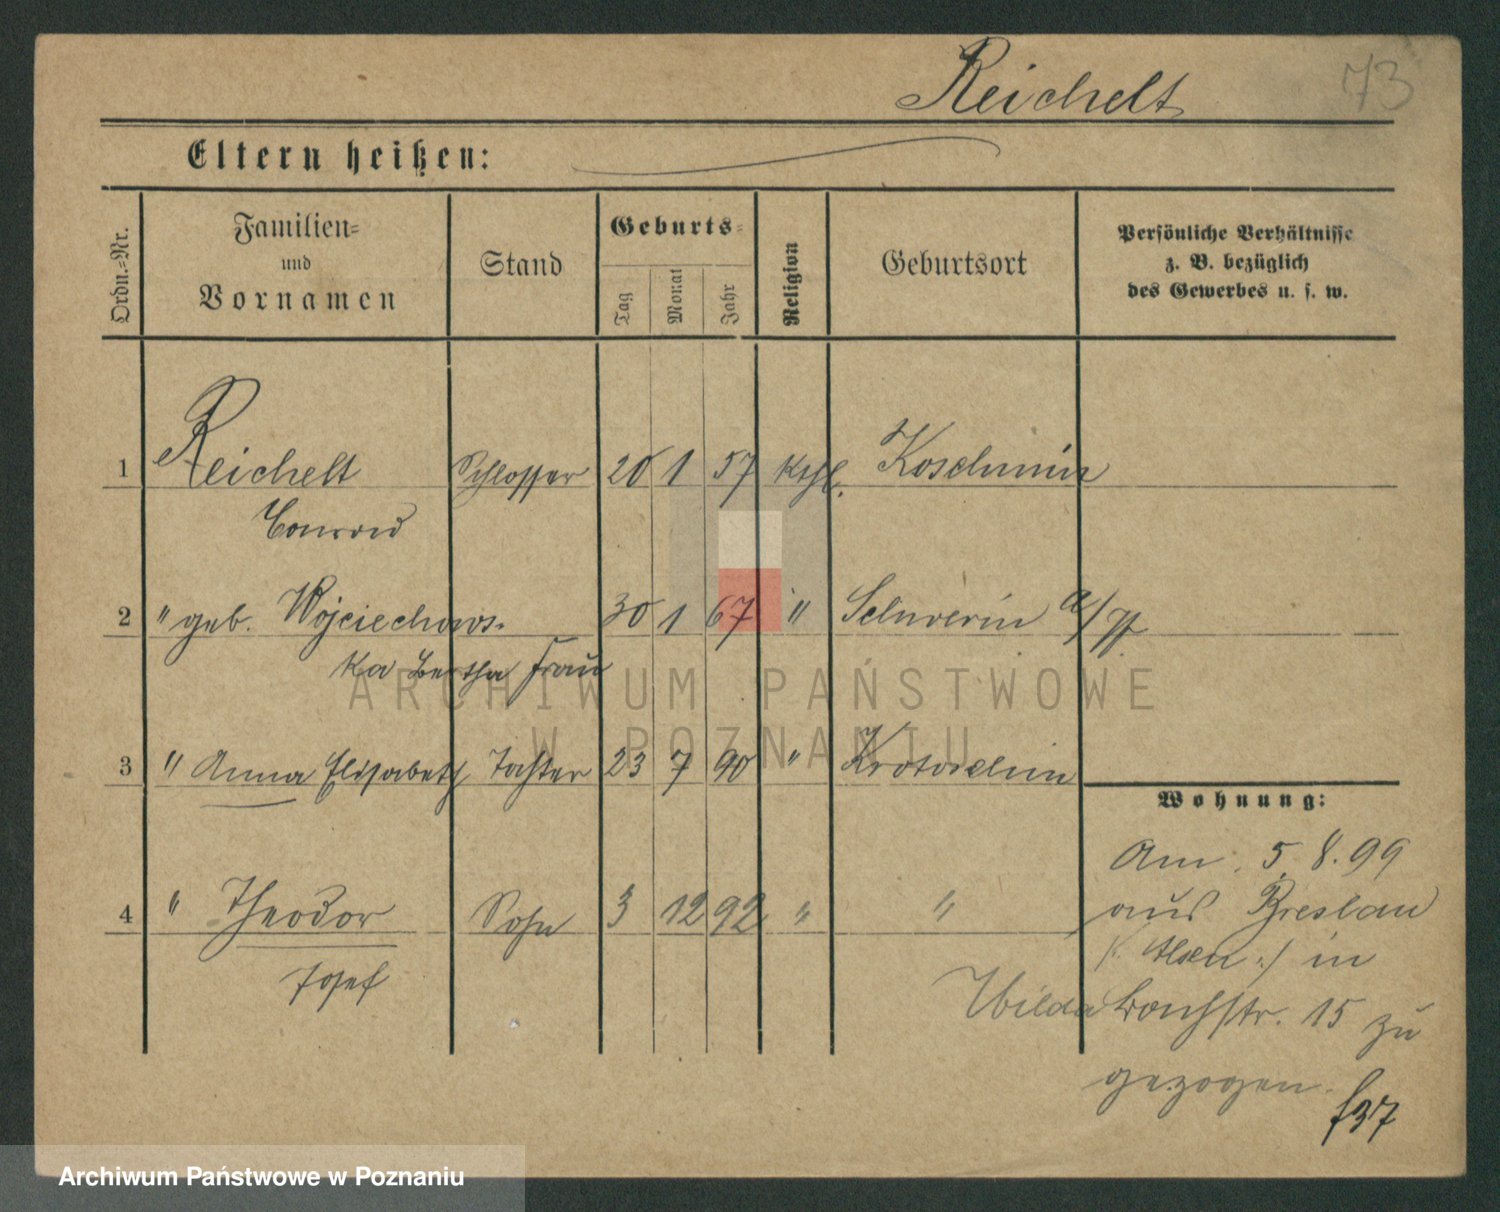 Reichelt 73
Eltern heißen:
Ordn.-Nr.
Familien-
und
Vornamen
Stand
Geburts-
Tag
Monat
Jahr
Religion
Geburtsort
Persönliche Verhältnisse
z. B. bezüglich
des Gewerbes u. s. w.
1 Reichelt Schlosser 20 1 57 Kthl. Koschmin
Conrad
2 " geb. Wojciechows- 30 1 67 " Schwerin a/
ka Bertha Frau
3 " Anna Elisabeth Tochter 23 7 90 " Krotoschin
4 " Theodor Sohn 3 12 92 " "
Josef
Wohnung:
Am 5.8.99
aus Breslau
in
Wilda 15 zu
gezogen.
f37
ARCHIWUM PAŃSTWOWE
W POZNANIU
Archiwum Państwowe w Poznaniu